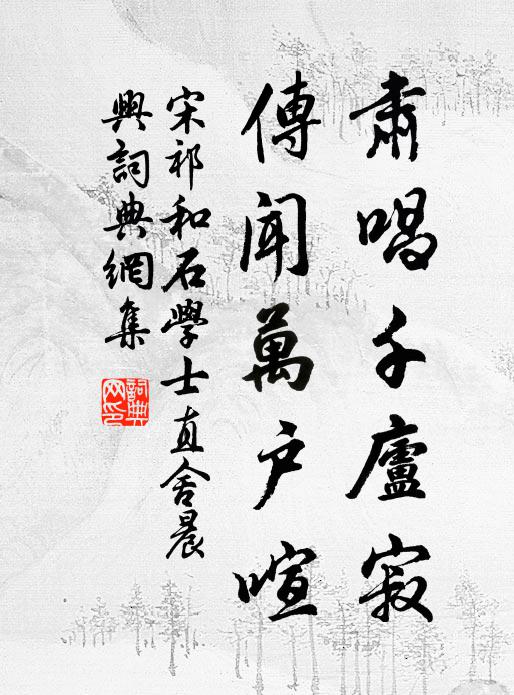 肅唱千廬寂
傳聞萬户喧
宋祁和石學士直舍晨
興詞典網集
詞典网印